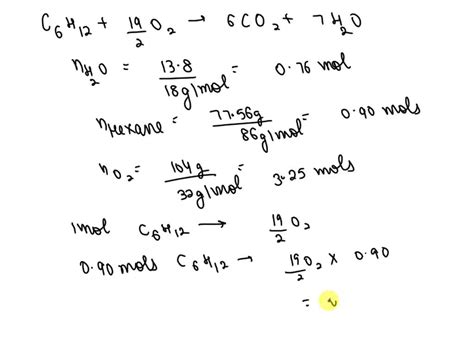 C6H12 + 19/2 O2 → 6CO2 + 7H2O
nH2O = 13.8 / 18g/mol = 0.76 mol
nHexane = 77.56g / 86g/mol = 0.90 mols
nO2 = 104g / 32g/mol = 3.25 mols
1mol C6H12 → 19/2 O2
0.90 mols C6H12 → 19/2 O2 × 0.90
=